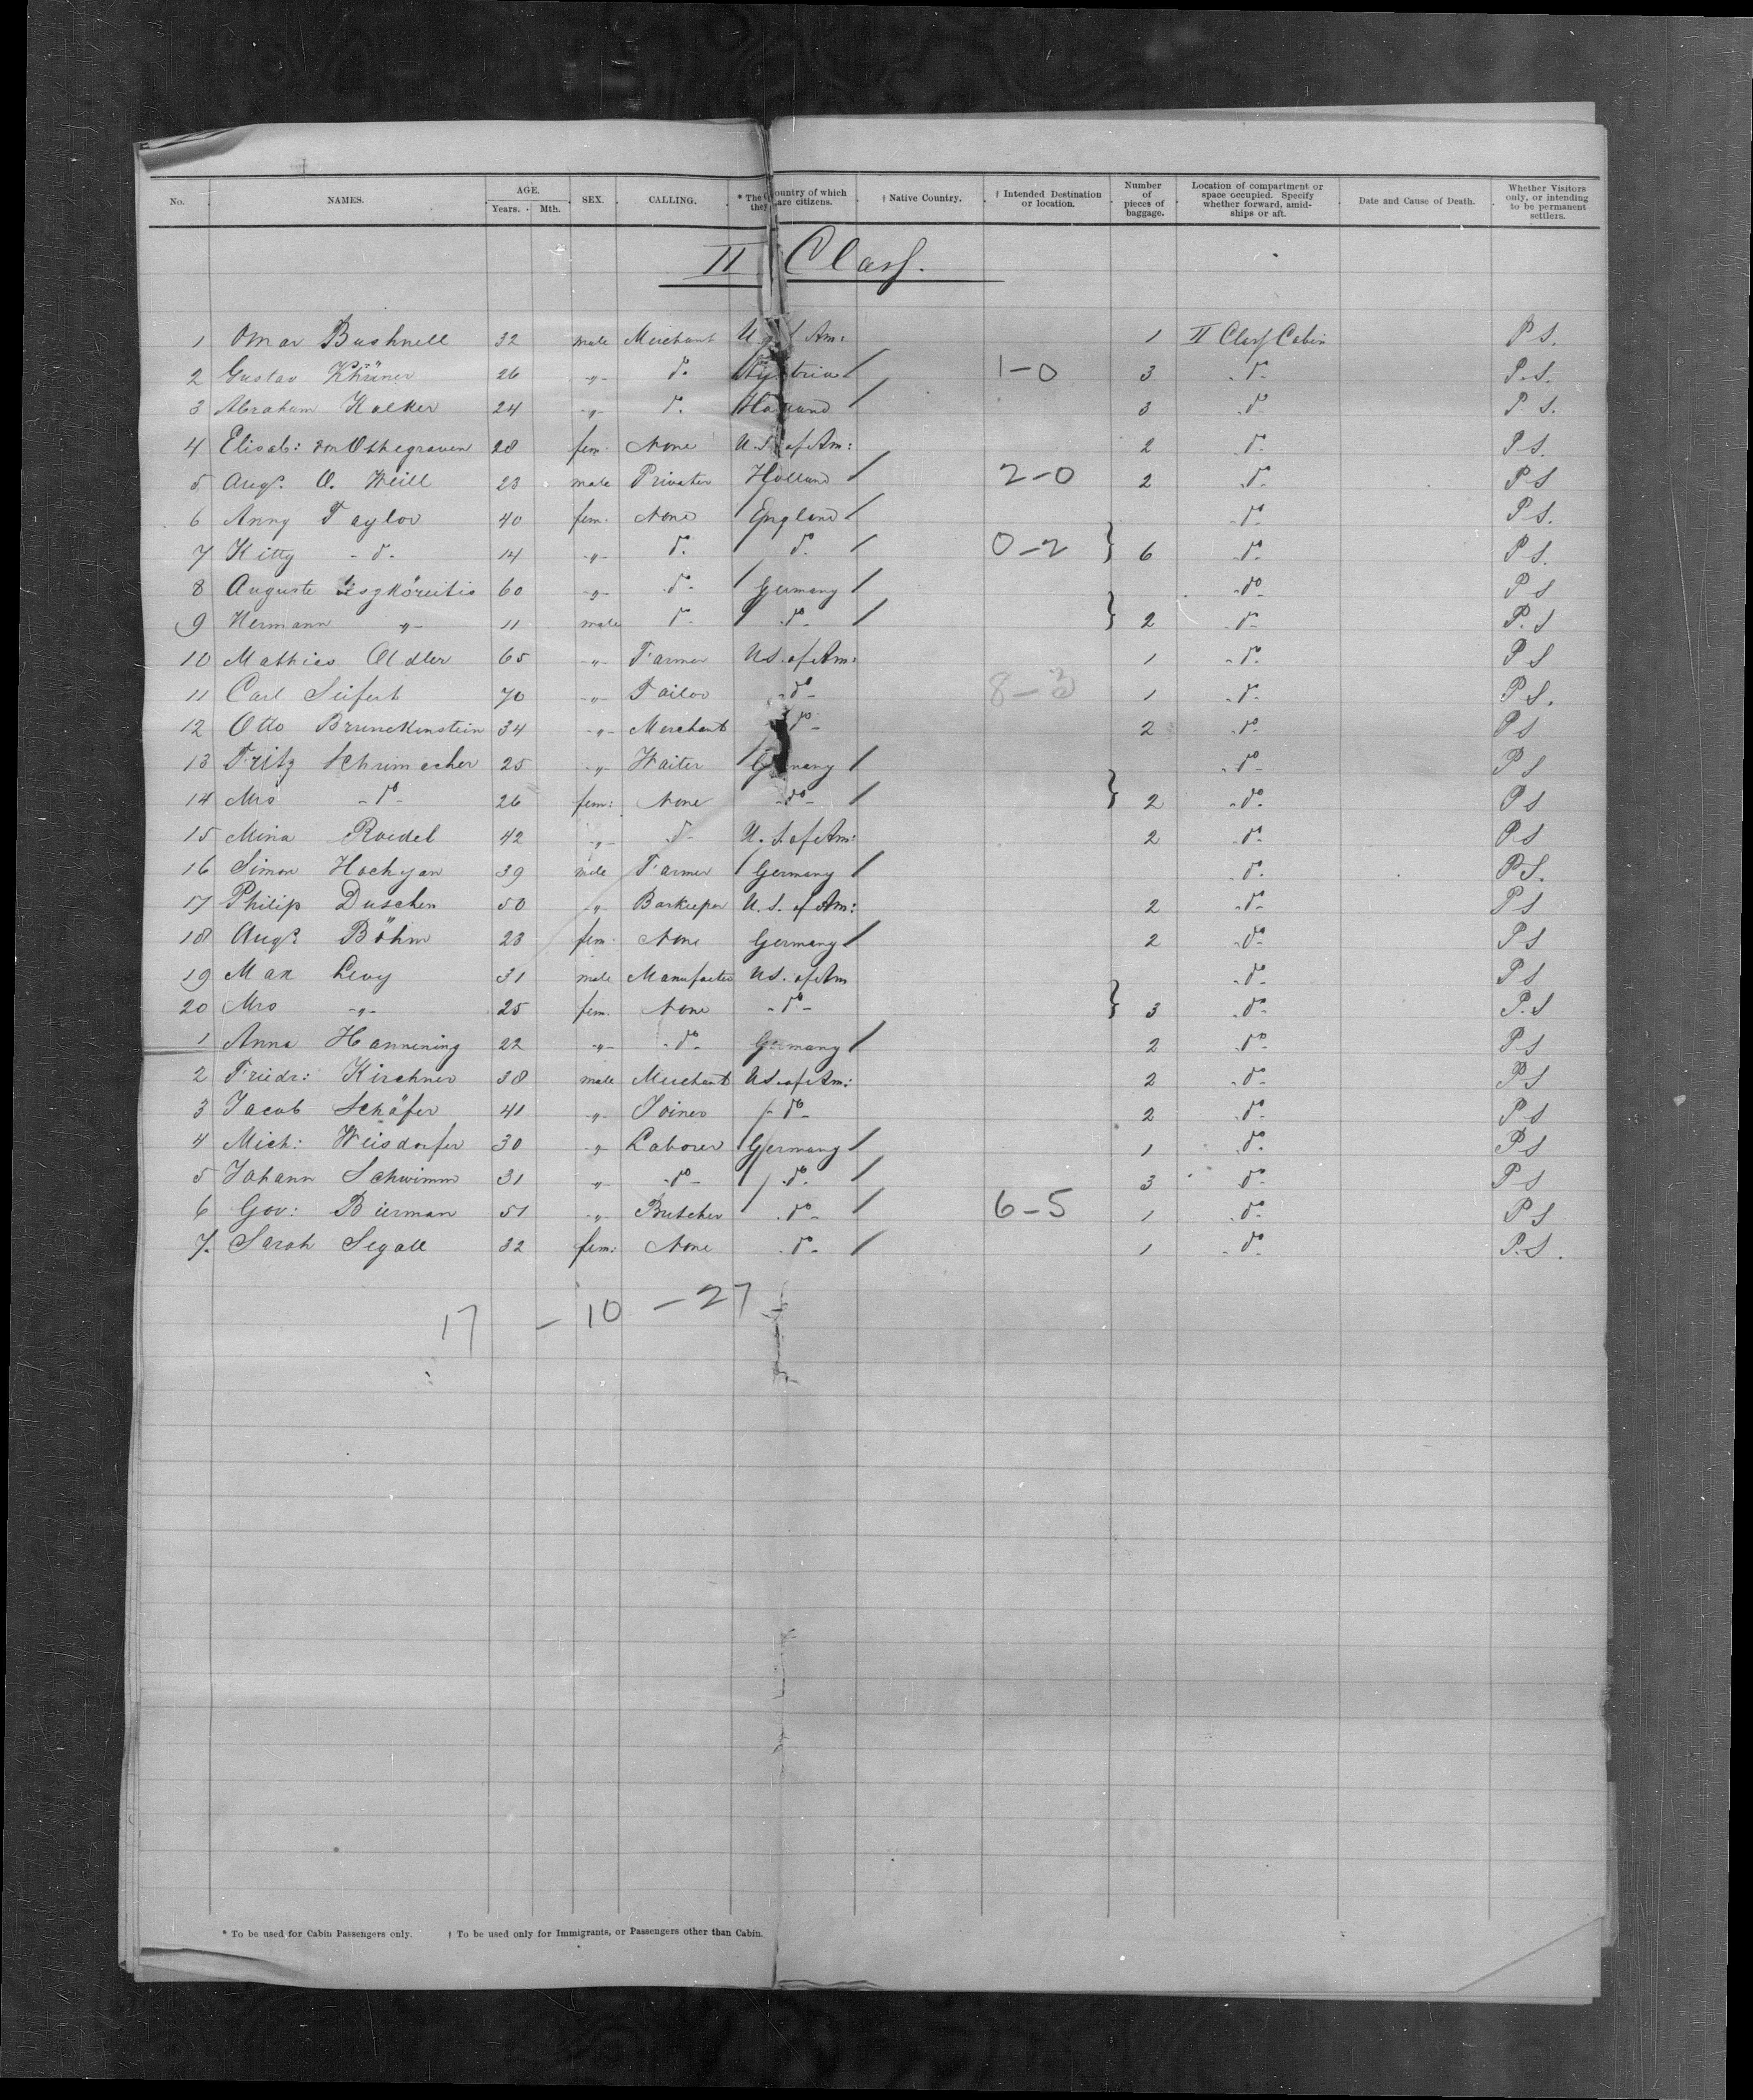 No. NAMES. AGE. Years. Mth. SEX. CALLING. * The Country of which they are citizens. † Native Country. † Intended Destination or location. Number of pieces of baggage. Location of compartment or space occupied. Specify whether forward, amidships or aft. Date and Cause of Death. Whether Visitors only, or intending to be permanent settlers.
II Class.
1 Omar Bushnell 32 male Merchant U.S. Am: 1 II Class Cabin P S.
2 Gustav 26 -"- do. Austria / 1-0 3 -do- P.S.
3 Abraham Kalker 24 -"- do. Holland / 3 -do- P S.
4 Elisab: von Othegraven 28 fem. None U.S. of Am: 2 -do- P S.
5 Augs. O. Weill 23 male Privatier Holland / 2-0 2 -do- P S
6 Anny Taylor 40 fem. None / England / -do- P S.
7 Kitty -do- 14 -"- do. / do. / 0-2 } 6 -do- P S.
8 Auguste 60 -"- -do- / Germany / -do- P S
9 Hermann -"- 11 male do- / do- / } 2 -do- P. S
10 Mathias Adler 65 -"- Farmer U.S. of Am: 1 -do- P S
11 Carl Seifert 70 -"- Tailor -do- 8-3 1 -do- P S.
12 Otto Brunckenstein 34 -"- Merchant -do- 2 -do- P S
13 Fritz Schumacher 25 -"- Waiter / Germany / -do- P S
14 Mrs -do- 26 fem: None -do- / } 2 -do- P S
15 Mina Roedel 42 -"- -do- U.S. of Am: 2 -do- P S
16 Simon Hochyan 39 male Farmer / Germany / -do- P S.
17 Philip Duschen 50 -"- Barkeeper U.S. of Am: 2 -do- P S
18 Augs. Böhm 23 fem. None Germany / 2 -do- P S
19 Max Levy 31 male Manufacter U.S. of Am -do- P S
20 Mrs -"- 25 fem. None -do- } 3 -do- P.S
1 Anna Hannening 22 -"- -do- Germany / 2 -do- P S
2 Friedr: Kirchner 38 male Merchant U.S. of Am: 2 -do- P S
3 Jacob Schäfer 41 -"- Joiner -do- 2 -do- P S
4 Mich: Weisdorfer 30 -"- Laborer / Germany / 1 -do- P S
5 Johann Schwimm 31 -"- -do- / do. / 3 -do- P S
6 Gov: Bierman 51 -"- Butcher / -do- / 6-5 1 -do- P S
7. Sarah Segall 32 fem: None -do- / 1 -do- P.S.
17 - 10 - 27
* To be used for Cabin Passengers only. † To be used only for Immigrants, or Passengers other than Cabin.